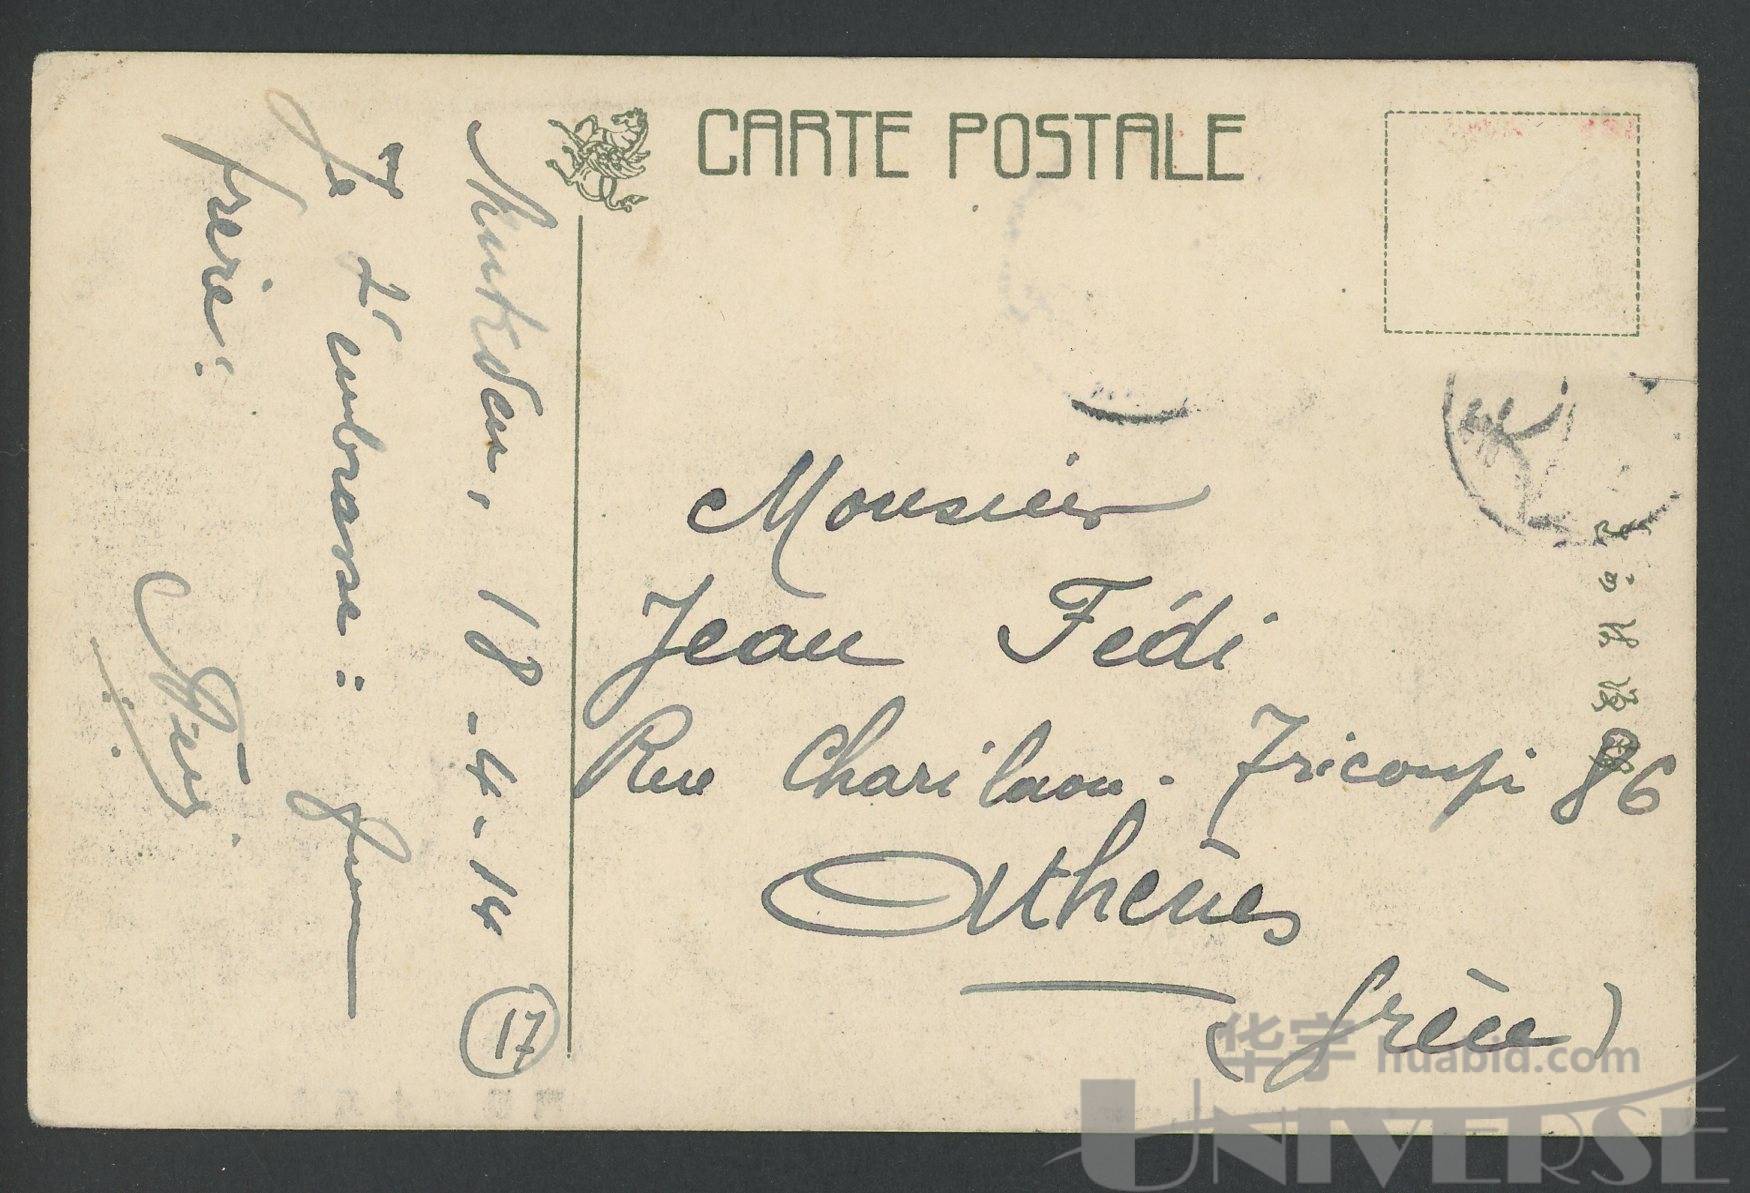 CARTE POSTALE
Moukden, 18-4-14
17
Je t'embrasse: 
frère:
Monsieur
Jean Fédi
Rue Charilaou-Tricoupi 86
Athènes
(Grèce)
华宇 huabid.com
UNIVERSE